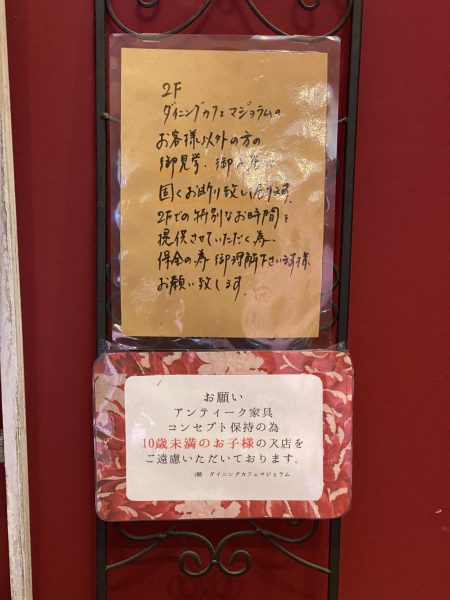 2F
ダイニングカフェマジョラムの
お客様以外の方の
御見学、御入店は
固くお断り致して居ります。
2Fでの特別なお時間を
提供させていただく為、
保全の為御理解下さいます様
お願い致します。
お願い
アンティーク家具
コンセプト保持の為
10歳未満のお子様の入店を
ご遠慮いただいております。
2階 ダイニングカフェマジョラム